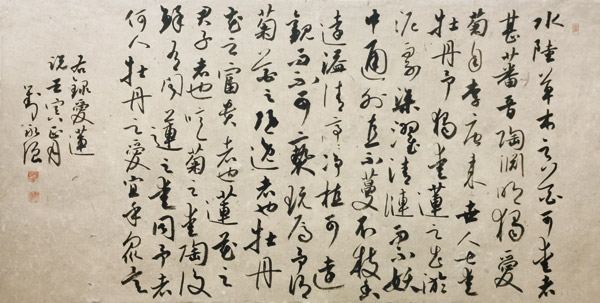 水陸草木之花可愛者
甚蕃晉陶淵明獨愛
菊自李唐来世人甚愛
牡丹予獨愛蓮之出淤
泥而不染濯清漣而不妖
中通外直不蔓不枝香
遠溢清亭亭淨植可遠
觀而不可褻玩焉予謂
菊花之隱逸者也牡丹
花之富貴者也蓮花之
君子者也噫菊之愛陶後
鮮有聞蓮之愛同予者
何人牡丹之愛宜乎眾矣
右録愛蓮
說壬寅正月